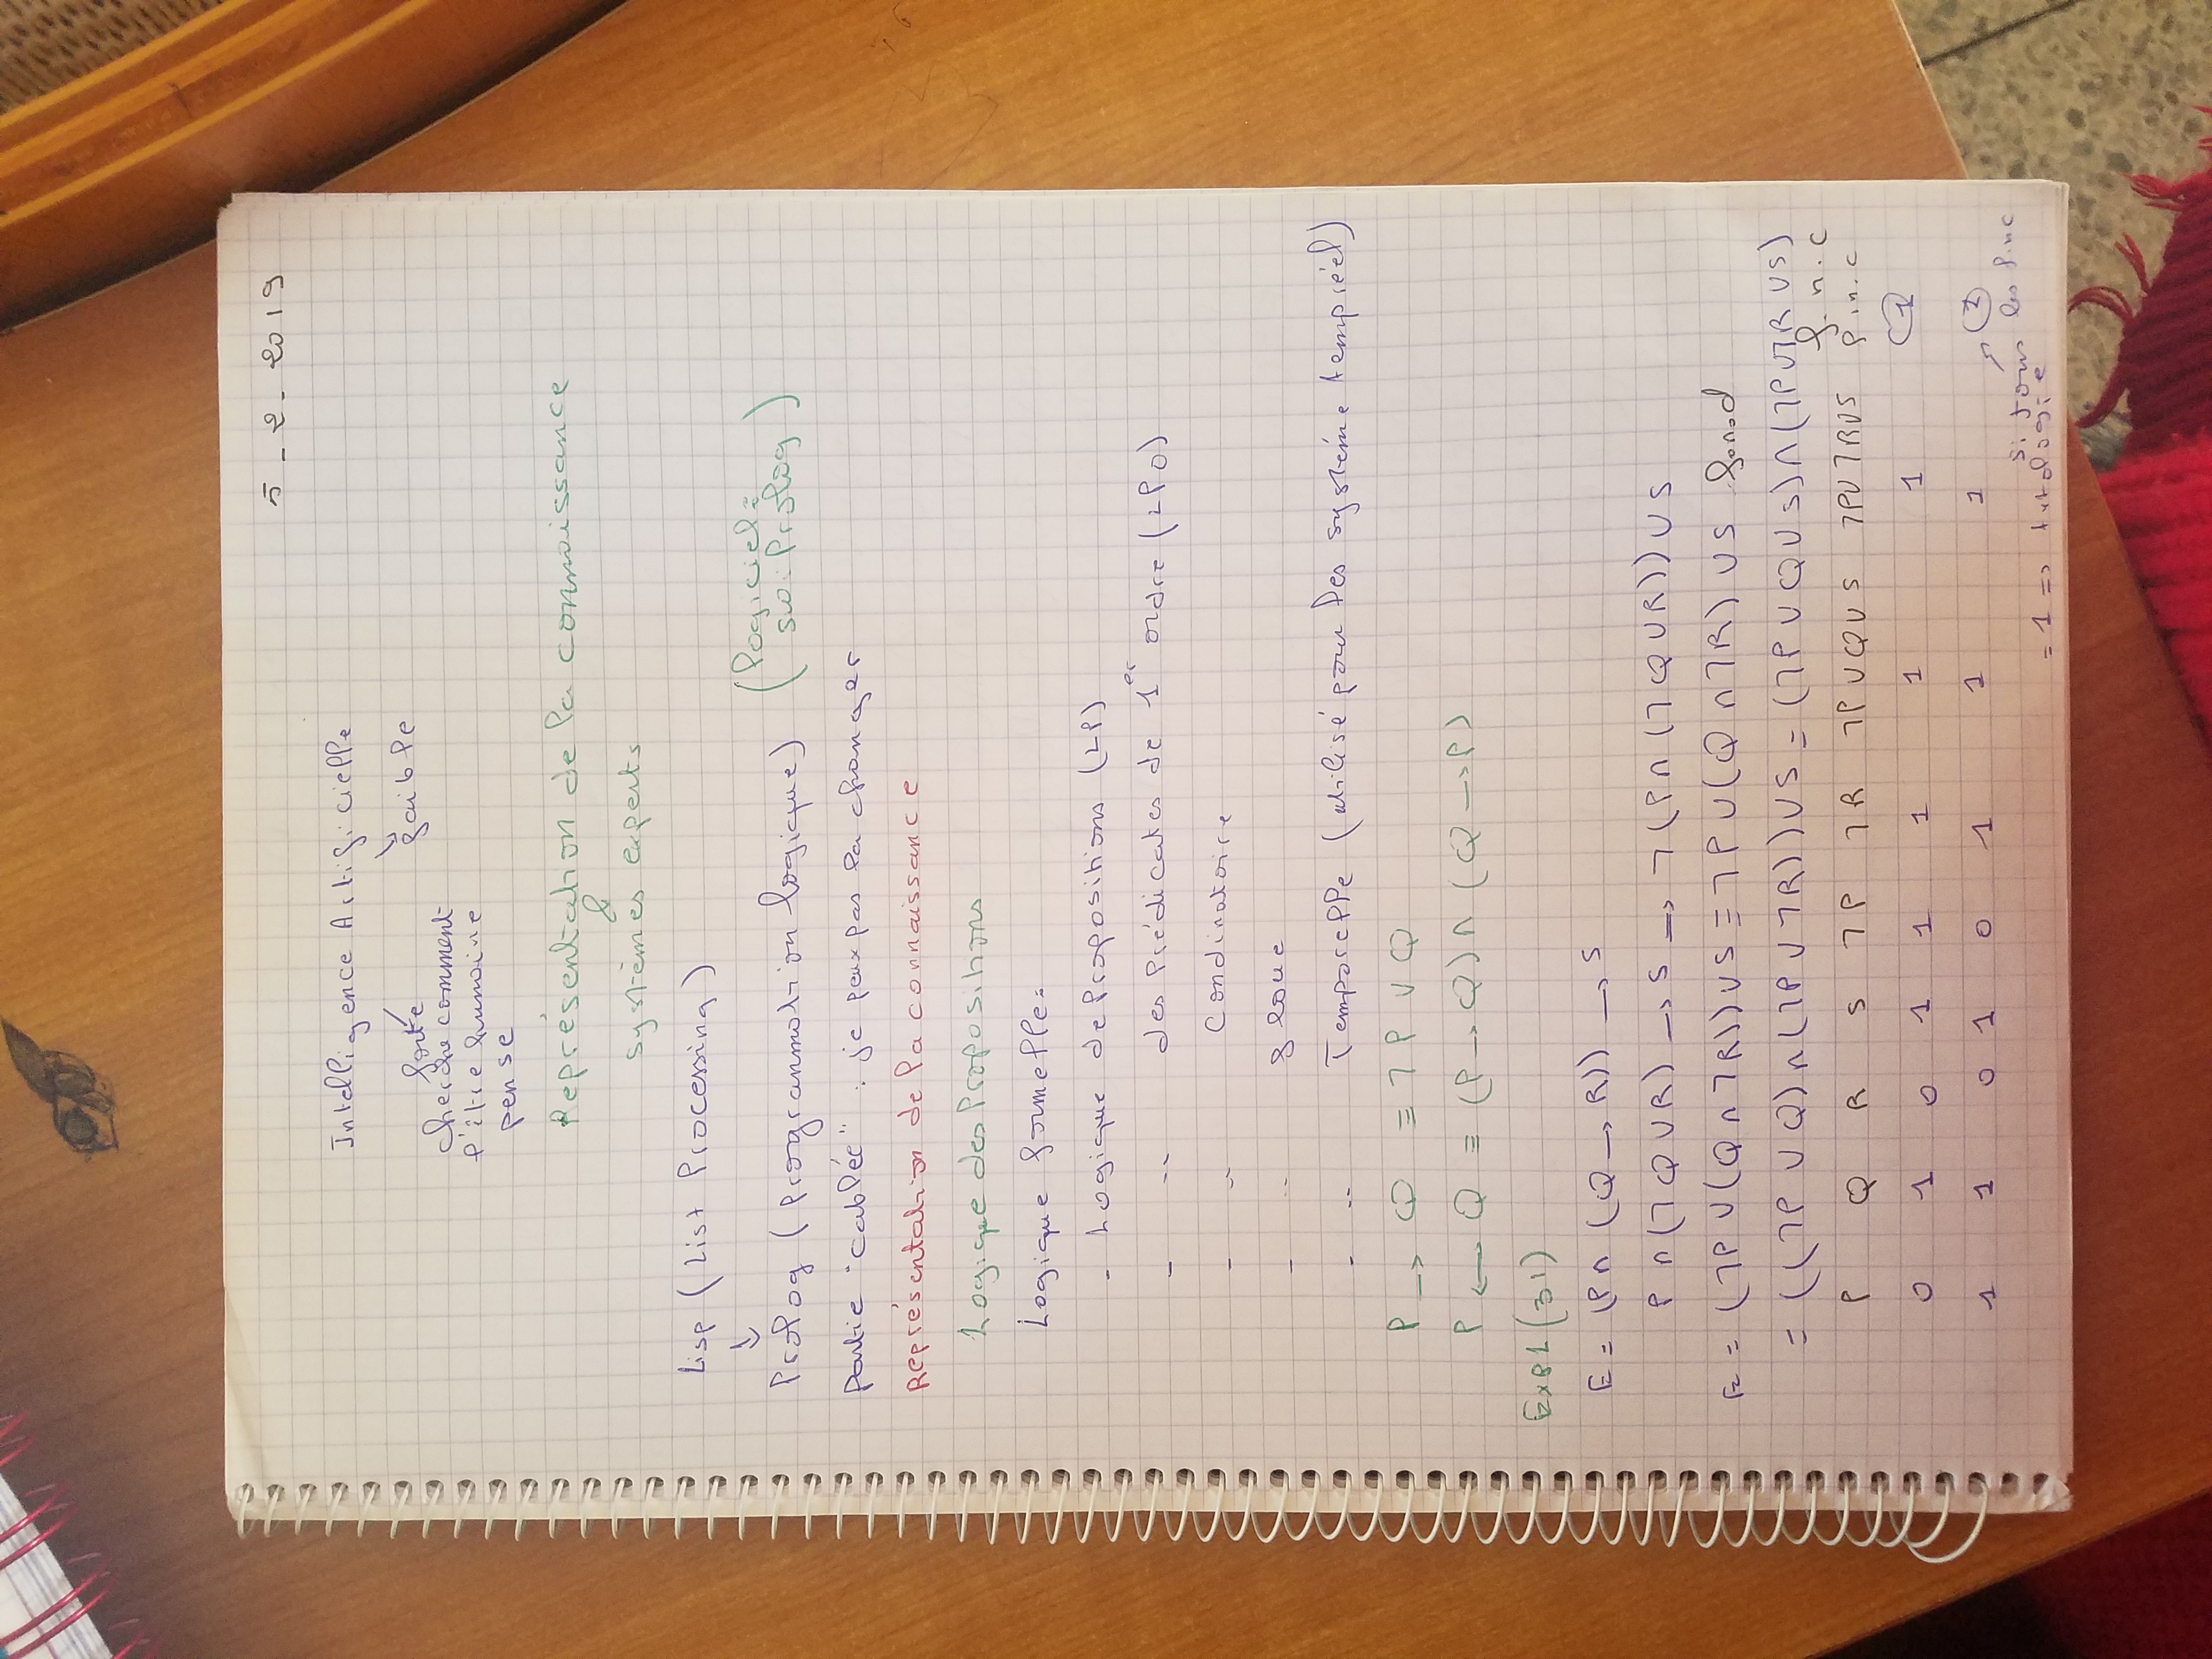 5-2-2019
Intelligence Artificielle
forte faible
cherche comment
l'être humaine
pense
Représentation de la connaissance
&
systèmes experts
Lisp (List Processing)
↓
Prolog (programmation logique) (logiciel: swi Prolog)
Partie "cablée" : je peux pas la changer
Représentation de la connaissance
Logique des Propositions
Logique formelle:
- Logique de Propositions (LP)
- -- des Prédicates de 1er ordre (LPO)
- -- Condinatoire
- -- floue
- -- Temporelle (utilisé pour les système temp réel)
P → Q ≡ ¬P ∨ Q
P ↔ Q ≡ (P → Q) ∧ (Q → P)
(31)
E = (P ∧ (Q → R)) → S
P ∧ (¬Q ∨ R) → S → ¬(P ∧ (¬Q ∨ R)) ∨ S
E = (¬P ∨ (Q ∧ ¬R)) ∨ S ≡ ¬P ∨ (Q ∧ ¬R) ∨ S f.n.d
= ((¬P ∨ Q) ∧ (¬P ∨ ¬R)) ∨ S = (¬P ∨ Q ∨ S) ∧ (¬P ∨ ¬R ∨ S)
f.n.c
P Q R S ¬P ¬R ¬P∨Q∨S ¬P∨¬R∨S f.n.c
0 1 0 1 1 1 1 1 1
1 1 0 1 0 1 1 1 1
si tous les f.n.c
= 1 => tutologie